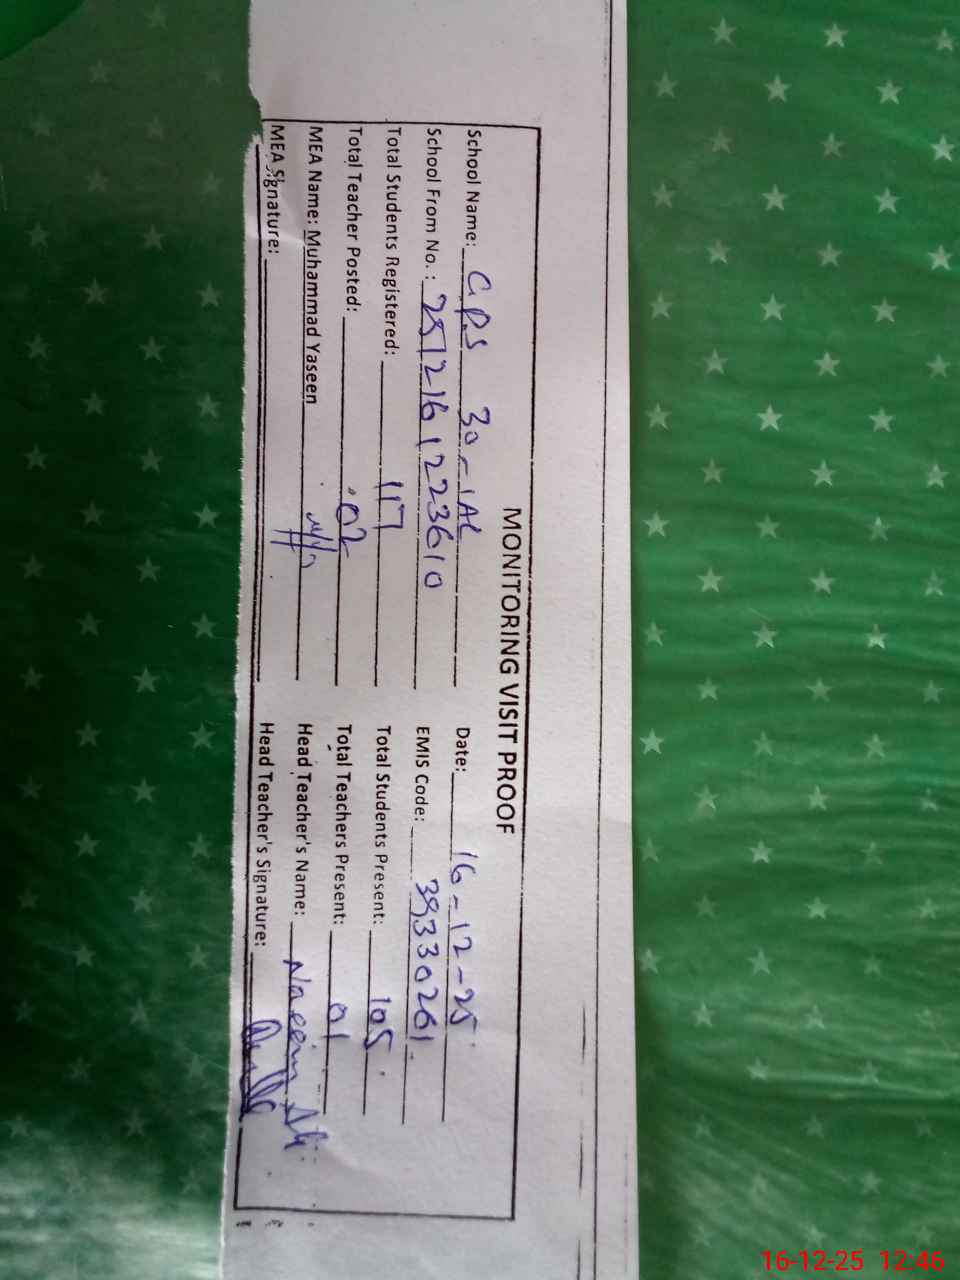 MONITORING VISIT PROOF
School Name: GPS 30-1AL Date: 16-12-25
School From No. : 2512161223610 EMIS Code: 39330261
Total Students Registered: 117 Total Students Present: 105
Total Teacher Posted: 02 Total Teachers Present: 01
MEA Name: Muhammad Yaseen Head Teacher's Name: Naeem Ali
MEA Signature: Head Teacher's Signature:
16-12-25 12:46